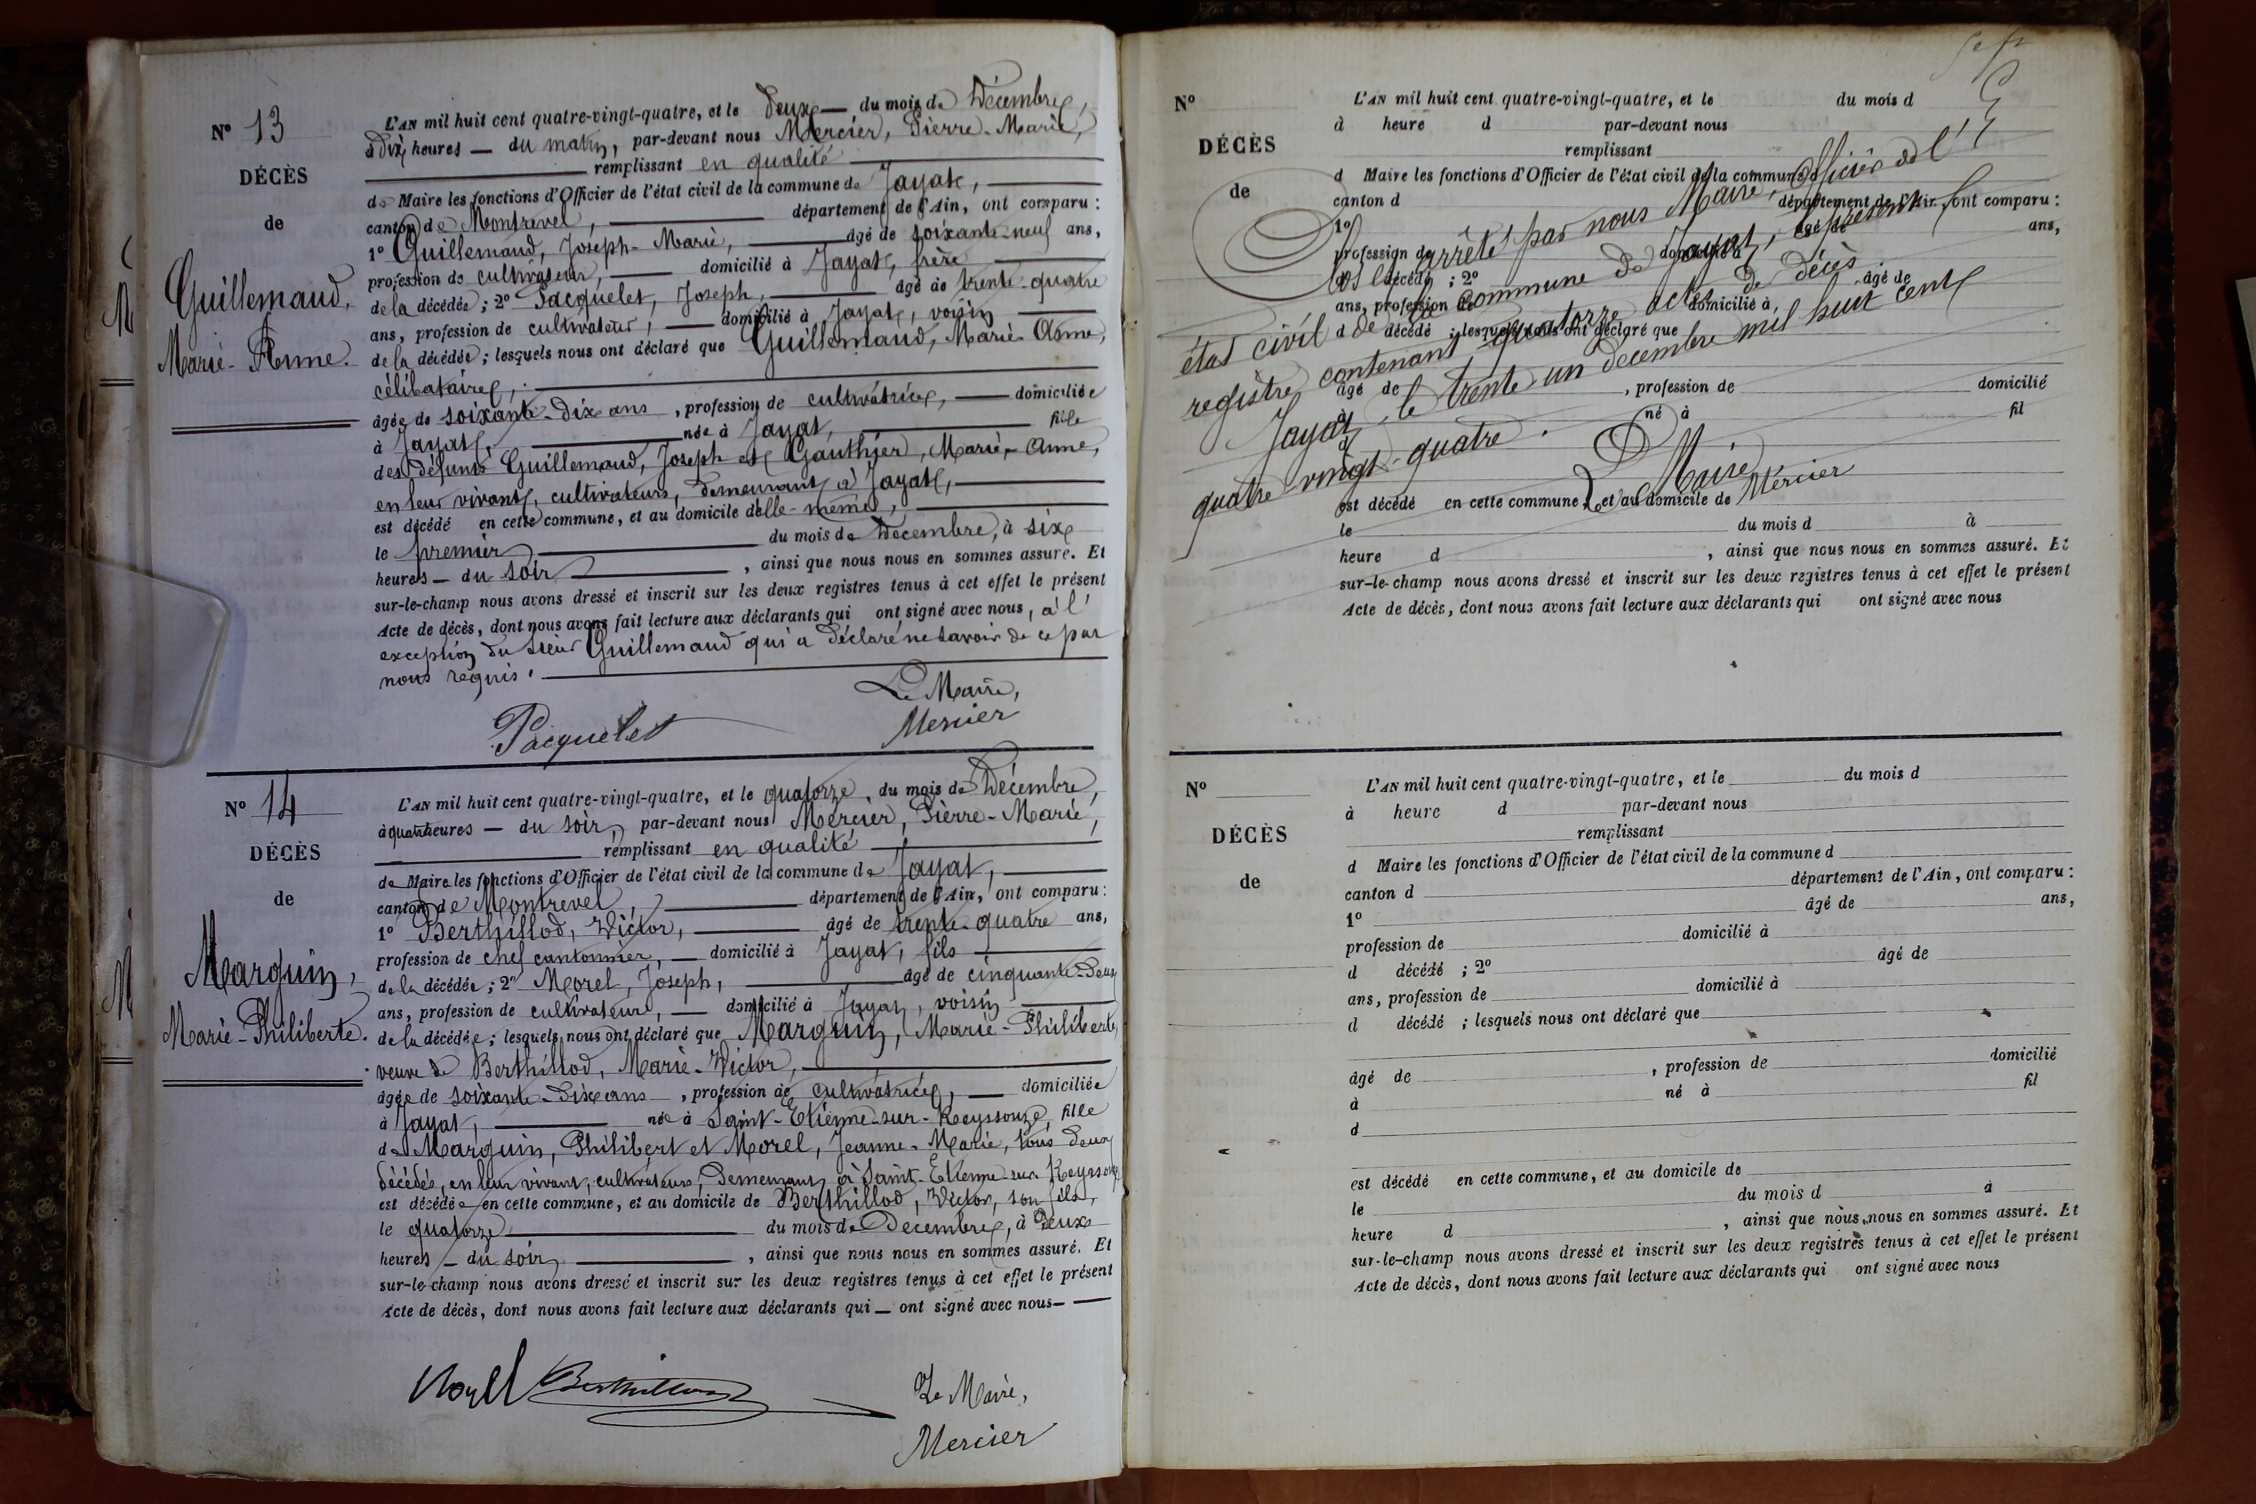 N° 13
DÉCÈS
de
Guillemaud,
Marie-Anne.
L'AN mil huit cent quatre-vingt-quatre, et le deux — du mois de Décembre,
à dix heures — du matin, par-devant nous Mercier, Pierre-Marie,
remplissant en qualité
de Maire les fonctions d'Officier de l'état civil de la commune de Jayat,
canton de Montrevel, département de l'Ain, ont comparu :
1° Guillemaud, Joseph-Marie, âgé de soixante-neuf ans,
profession de cultivateur, domicilié à Jayat, frère
de la décédée ; 2° Pacquelet, Joseph, âgé de trente-quatre
ans, profession de cultivateur, domicilié à Jayat, voisin
de la décédée ; lesquels nous ont déclaré que Guillemaud, Marie-Anne,
célibataire,
âgée de soixante-dix ans, profession de cultivatrice, domiciliée
à Jayat, née à Jayat, fille
des défunts Guillemaud, Joseph et Gauthier, Marie-Anne,
en leur vivant, cultivateurs, demeurant à Jayat,
est décédé en cette commune, et au domicile d'elle-même,
le premier du mois de Décembre, à six
heures — du soir, ainsi que nous nous en sommes assuré. Et
sur-le-champ nous avons dressé et inscrit sur les deux registres tenus à cet effet le présent
Acte de décès, dont nous avons fait lecture aux déclarants qui ont signé avec nous, à l'
exception du sieur Guillemaud qui a déclaré ne savoir de ce par
nous requis.
Le Maire,
Pacquelet Mercier
N° 14
DÉCÈS
de
Marguin,
Marie-Philiberte.
L'AN mil huit cent quatre-vingt-quatre, et le quatorze, du mois de Décembre,
à quatre heures — du soir, par-devant nous Mercier, Pierre-Marie,
remplissant en qualité
de Maire les fonctions d'Officier de l'état civil de la commune de Jayat,
canton de Montrevel, département de l'Ain, ont comparu :
1° Berthillod, Victor, âgé de trente-quatre ans,
profession de chef cantonnier, domicilié à Jayat, fils
de la décédée ; 2° Morel, Joseph, âgé de cinquante-deux
ans, profession de cultivateur, domicilié à Jayat, voisin
de la décédée ; lesquels nous ont déclaré que Marguin, Marie-Philiberte,
veuve de Berthillod, Marie-Victor,
âgée de soixante-dix ans, profession de cultivatrice, domiciliée
à Jayat, née à Saint-Etienne-sur-Reyssouze, fille
de Marguin, Philibert et Morel, Jeanne-Marie, tous deux
décédés, en leur vivant, cultivateurs, demeurant à Saint-Etienne-sur-Reyssouze
est décédée en cette commune, et au domicile de Berthillod, Victor, son fils,
le quatorze du mois de Décembre, à deux
heures — du soir, ainsi que nous nous en sommes assuré. Et
sur-le-champ nous avons dressé et inscrit sur les deux registres tenus à cet effet le présent
Acte de décès, dont nous avons fait lecture aux déclarants qui — ont signé avec nous —
Morel Berthillod Le Maire,
Mercier
N°
DÉCÈS
de
L'AN mil huit cent quatre-vingt-quatre, et le du mois d
à heure d par-devant nous
remplissant
d Maire les fonctions d'Officier de l'état civil de la commune d
canton d département de l'Ain, ont comparu :
1° âgé de ans,
profession de domicilié à
d décédé ; 2° âgé de
ans, profession de domicilié à
d décédé ; lesquels nous ont déclaré que
âgé de , profession de domicilié
à né à fil
d
est décédé en cette commune, et au domicile de
le du mois d à
heure d , ainsi que nous nous en sommes assuré. Et
sur-le-champ nous avons dressé et inscrit sur les deux registres tenus à cet effet le présent
Acte de décès, dont nous avons fait lecture aux déclarants qui ont signé avec nous
Clos et arrêté par nous Maire, Officier de l'
état civil de la commune de Jayat, le présent
registre contenant quatorze actes de décès.
Jayat, le trente-un décembre mil huit cent
quatre-vingt-quatre.
Le Maire
Mercier
N°
DÉCÈS
de
L'AN mil huit cent quatre-vingt-quatre, et le du mois d
à heure d par-devant nous
remplissant
d Maire les fonctions d'Officier de l'état civil de la commune d
canton d département de l'Ain, ont comparu :
1° âgé de ans,
profession de domicilié à
d décédé ; 2° âgé de
ans, profession de domicilié à
d décédé ; lesquels nous ont déclaré que
âgé de , profession de domicilié
à né à fil
d
est décédé en cette commune, et au domicile de
le du mois d à
heure d , ainsi que nous nous en sommes assuré. Et
sur-le-champ nous avons dressé et inscrit sur les deux registres tenus à cet effet le présent
Acte de décès, dont nous avons fait lecture aux déclarants qui ont signé avec nous